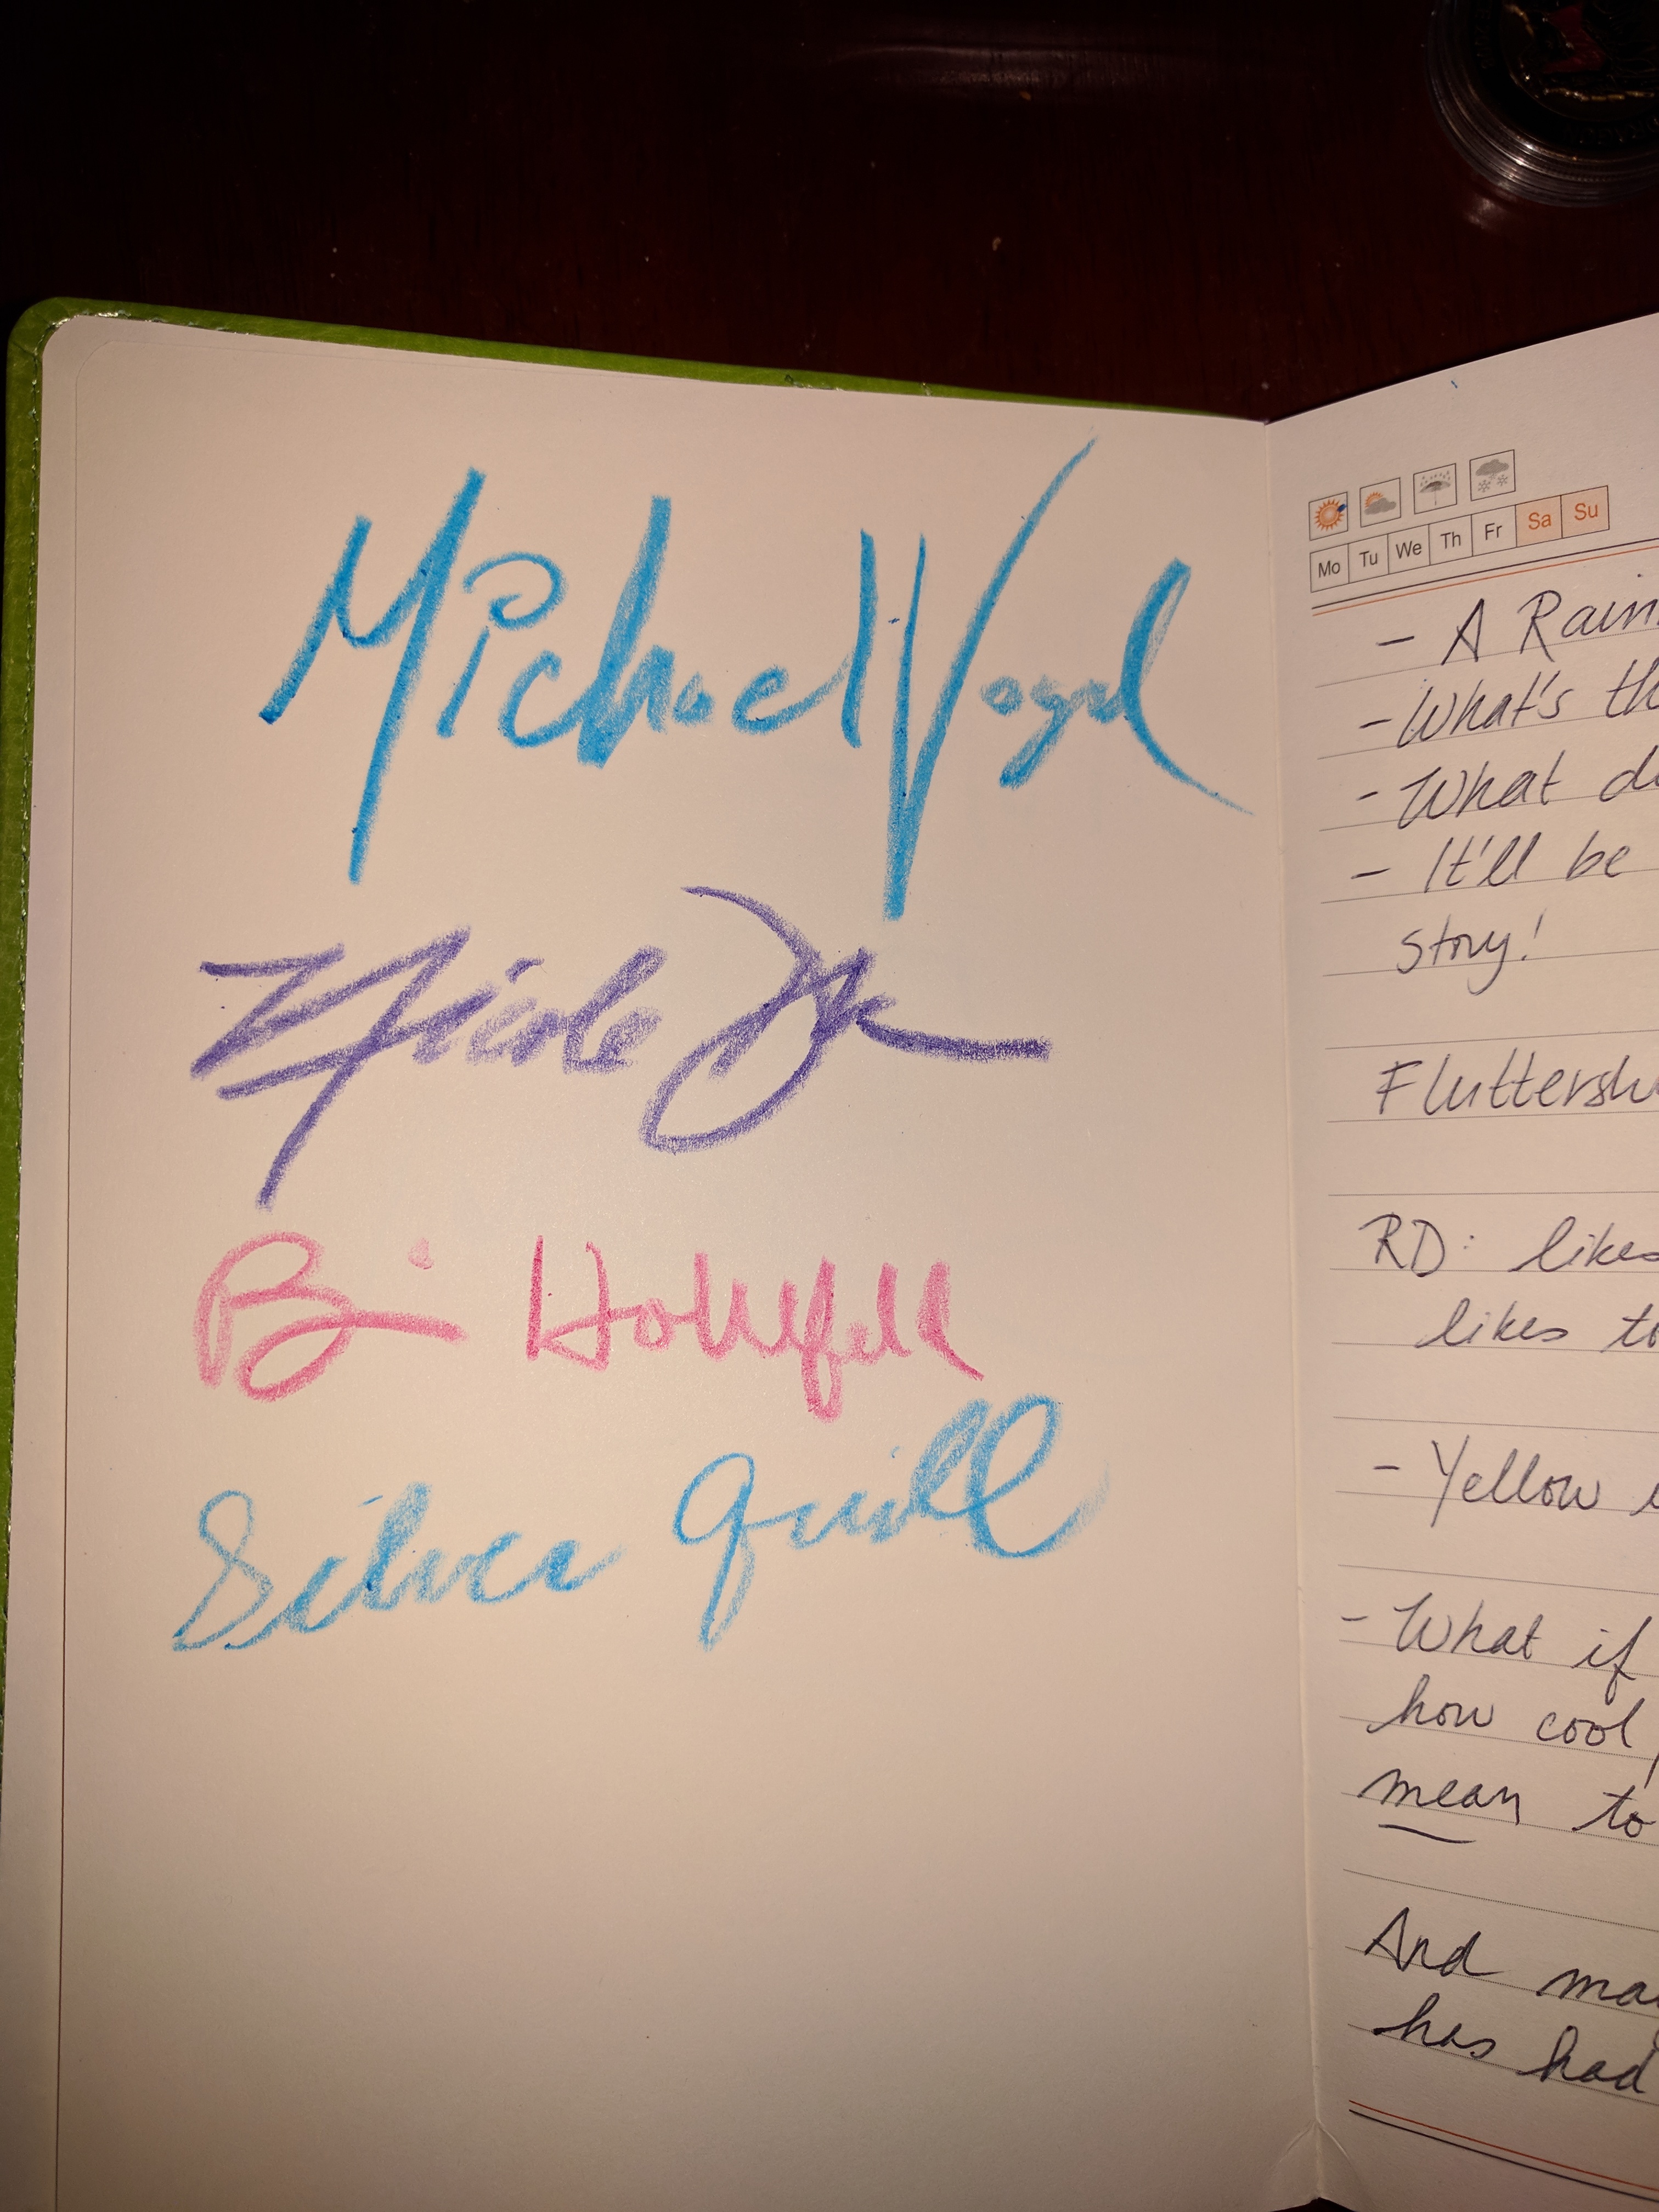 Michael Vogel
Nicole
Silver Quill
Mo Tu We Th Fr Sa Su
- A Rain
- What's th
- What d
- It'll be
story!
Fluttersh
RD: likes
likes to
- Yellow
- What if
how cool
mean to
And ma
has had